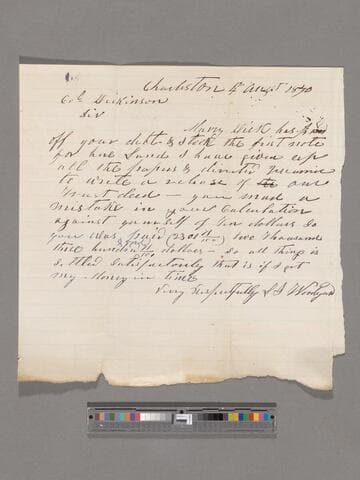 Charleston 4th Augst 1870
Col Dickinson
Sir
Mary Dick has paid
off your debt & took the first note
for her land I have given up
all the papers & directed
to write a release of our
Trust deed — you made a
mistake in your Calculation
against yourself of Ten dollars So
you was paid two thousand
three hundred dollars — So all things is
Settled Satisfactorily that is if I get
my Money in time
Very Respectfully S I